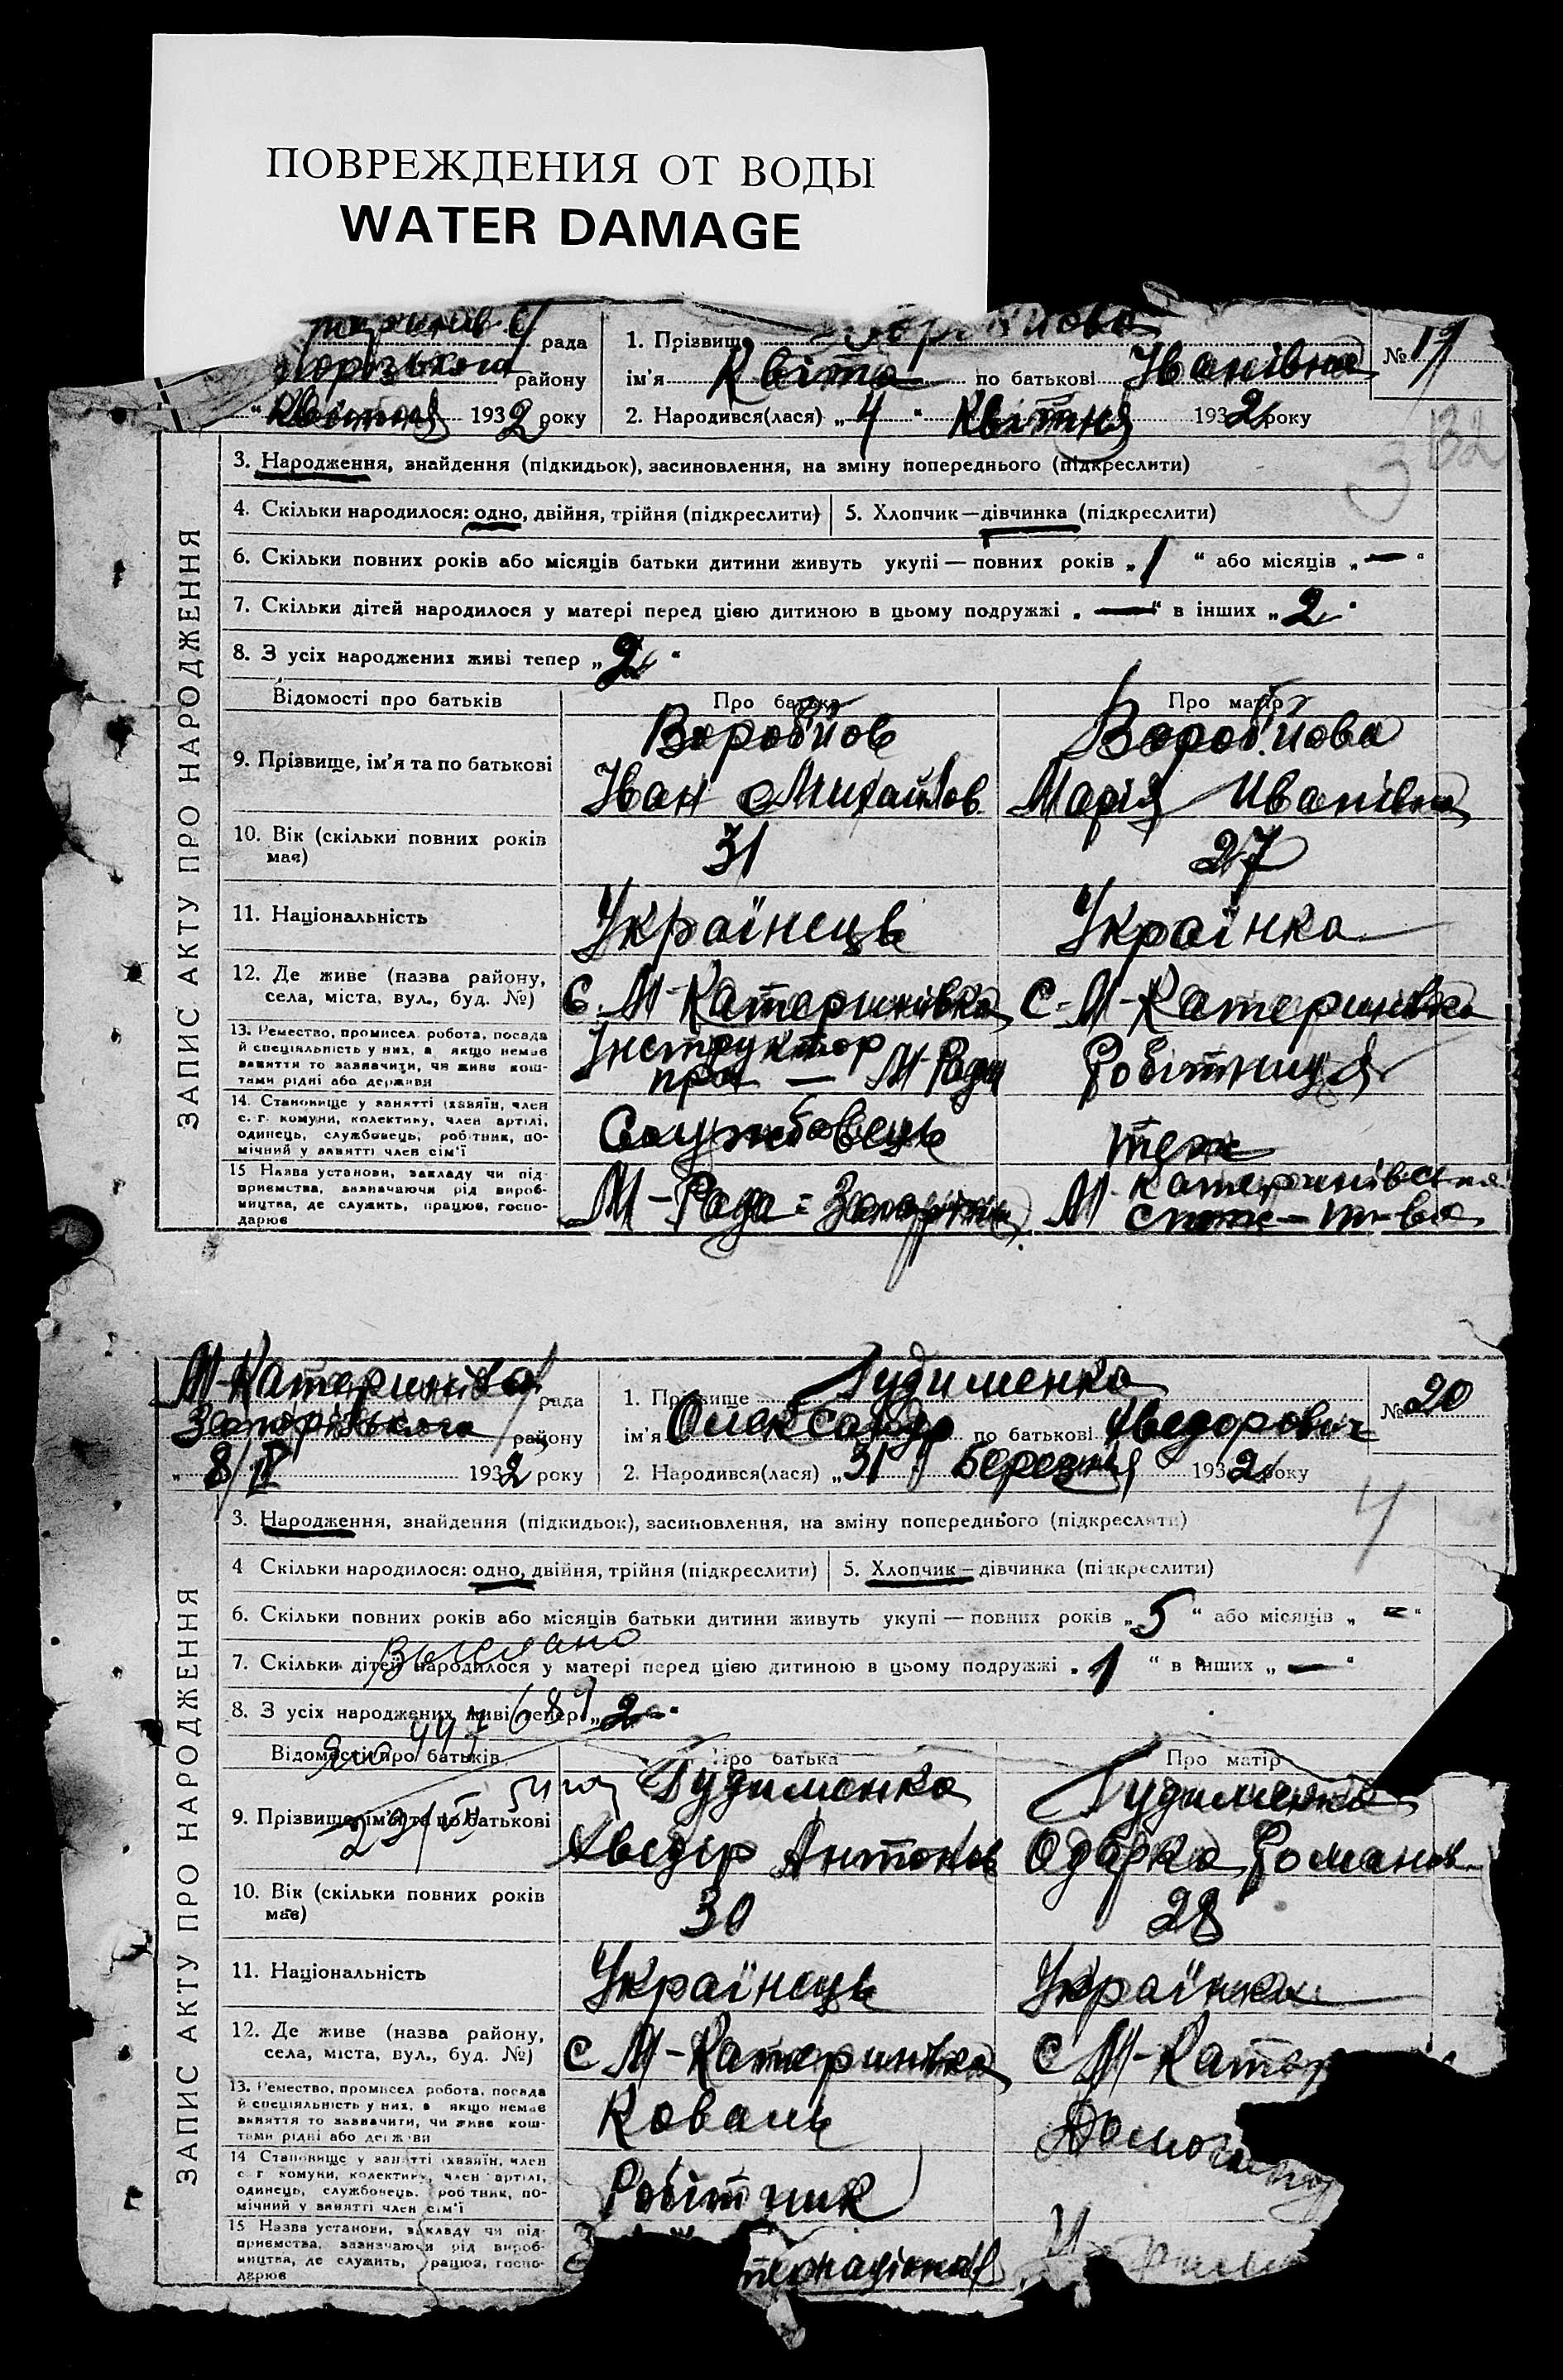 ПОВРЕЖДЕНИЯ ОТ ВОДЫ
WATER DAMAGE
рада
району
" Квітня 1932 року
1. Прізвище
ім'я Квіта по батькові Іванівна
2. Народився(лася) „4" Квітня 1932 року
№ 19
132
3
ЗАПИС АКТУ ПРО НАРОДЖЕННЯ
3. Народження, знайдення (підкидьок), засиновлення, на зміну попереднього (підкреслити)
4. Скільки народилося: одно, двійня, трійня (підкреслити) 5. Хлопчик—дівчинка (підкреслити)
6. Скільки повних років або місяців батьки дитини живуть укупі — повних років „1" або місяців „—"
7. Скільки дітей народилося у матері перед цією дитиною в цьому подружжі „—" в інших „2"
8. З усіх народжених живі тепер „2"
Відомості про батьків Про батька Про матір
9. Прізвище, ім'я та по батькові
Вороб'йов
Іван Михайлов.
Вороб'йова
Марія Иванівна
10. Вік (скільки повних років має)
31 27
11. Національність
Українець Українка
12. Де живе (назва району, села, міста, вул., буд. №)
С. М-Катеринівка С-М-Катеринівка
13. Ремество, промисел, робота, посада й спеціяльність у них, а якщо немає заняття то зазначити, чи живе коштами рідні або держави
Інструктор
при — М-Ради
Робітниця
14. Становище у занятті (хазяїн, член с.-г. комуни, колективу, член артілі, одинець, службовець, робітник, помічний у занятті член сім'ї
Службовець теж
15 Назва установи, закладу чи підприємства, зазначаючи рід виробництва, де служить, працює, господарює
М-Рада
М-Катеринівське
Спож-т-во
М-Катеринівка рада
Запорізького району
„8/IV 1932 року
1. Прізвище Гудименко
ім'я Олександр по батькові Хведорович
2. Народився(лася) „31" Березня 1932 року
№ 20
4
ЗАПИС АКТУ ПРО НАРОДЖЕННЯ
3. Народження, знайдення (підкидьок), засиновлення, на зміну попереднього (підкреслити)
4 Скільки народилося: одно, двійня, трійня (підкреслити) 5. Хлопчик—дівчинка (підкреслити)
6. Скільки повних років або місяців батьки дитини живуть укупі — повних років „5" або місяців „—"
Выслано
7. Скільки дітей народилося у матері перед цією дитиною в цьому подружжі „1" в інших „—"
8. З усіх народжених живі тепер „2"
Відомості про батьків Про батька Про матір
9. Прізвище, ім'я та по батькові
Гудименко
Хведір Антонов
Гудименко
Одарка Романов.
10. Вік (скільки повних років має)
30 28
11. Національність
Українець Українка
12. Де живе (назва району, села, міста, вул., буд. №)
С М-Катеринівка С М-Катер
13. Ремество, промисел, робота, посада й спеціяльність у них, а якщо немає заняття то зазначити, чи живе коштами рідні або держави
Коваль
14 Становище у занятті (хазяїн, член с.-г. комуни, колективу, член артілі, одинець, службовець, робітник, помічний у занятті член сім'ї
Робітник
15 Назва установи, закладу чи підприємства, зазначаючи рід виробництва, де служить, працює, господарює